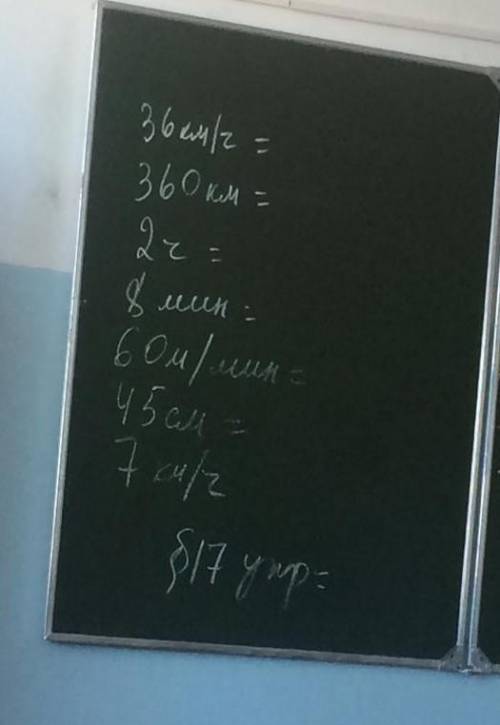 36 км/ч =
360 км =
2 ч =
8 мин =
60 м/мин =
45 см =
7 км/ч
§17 упр=